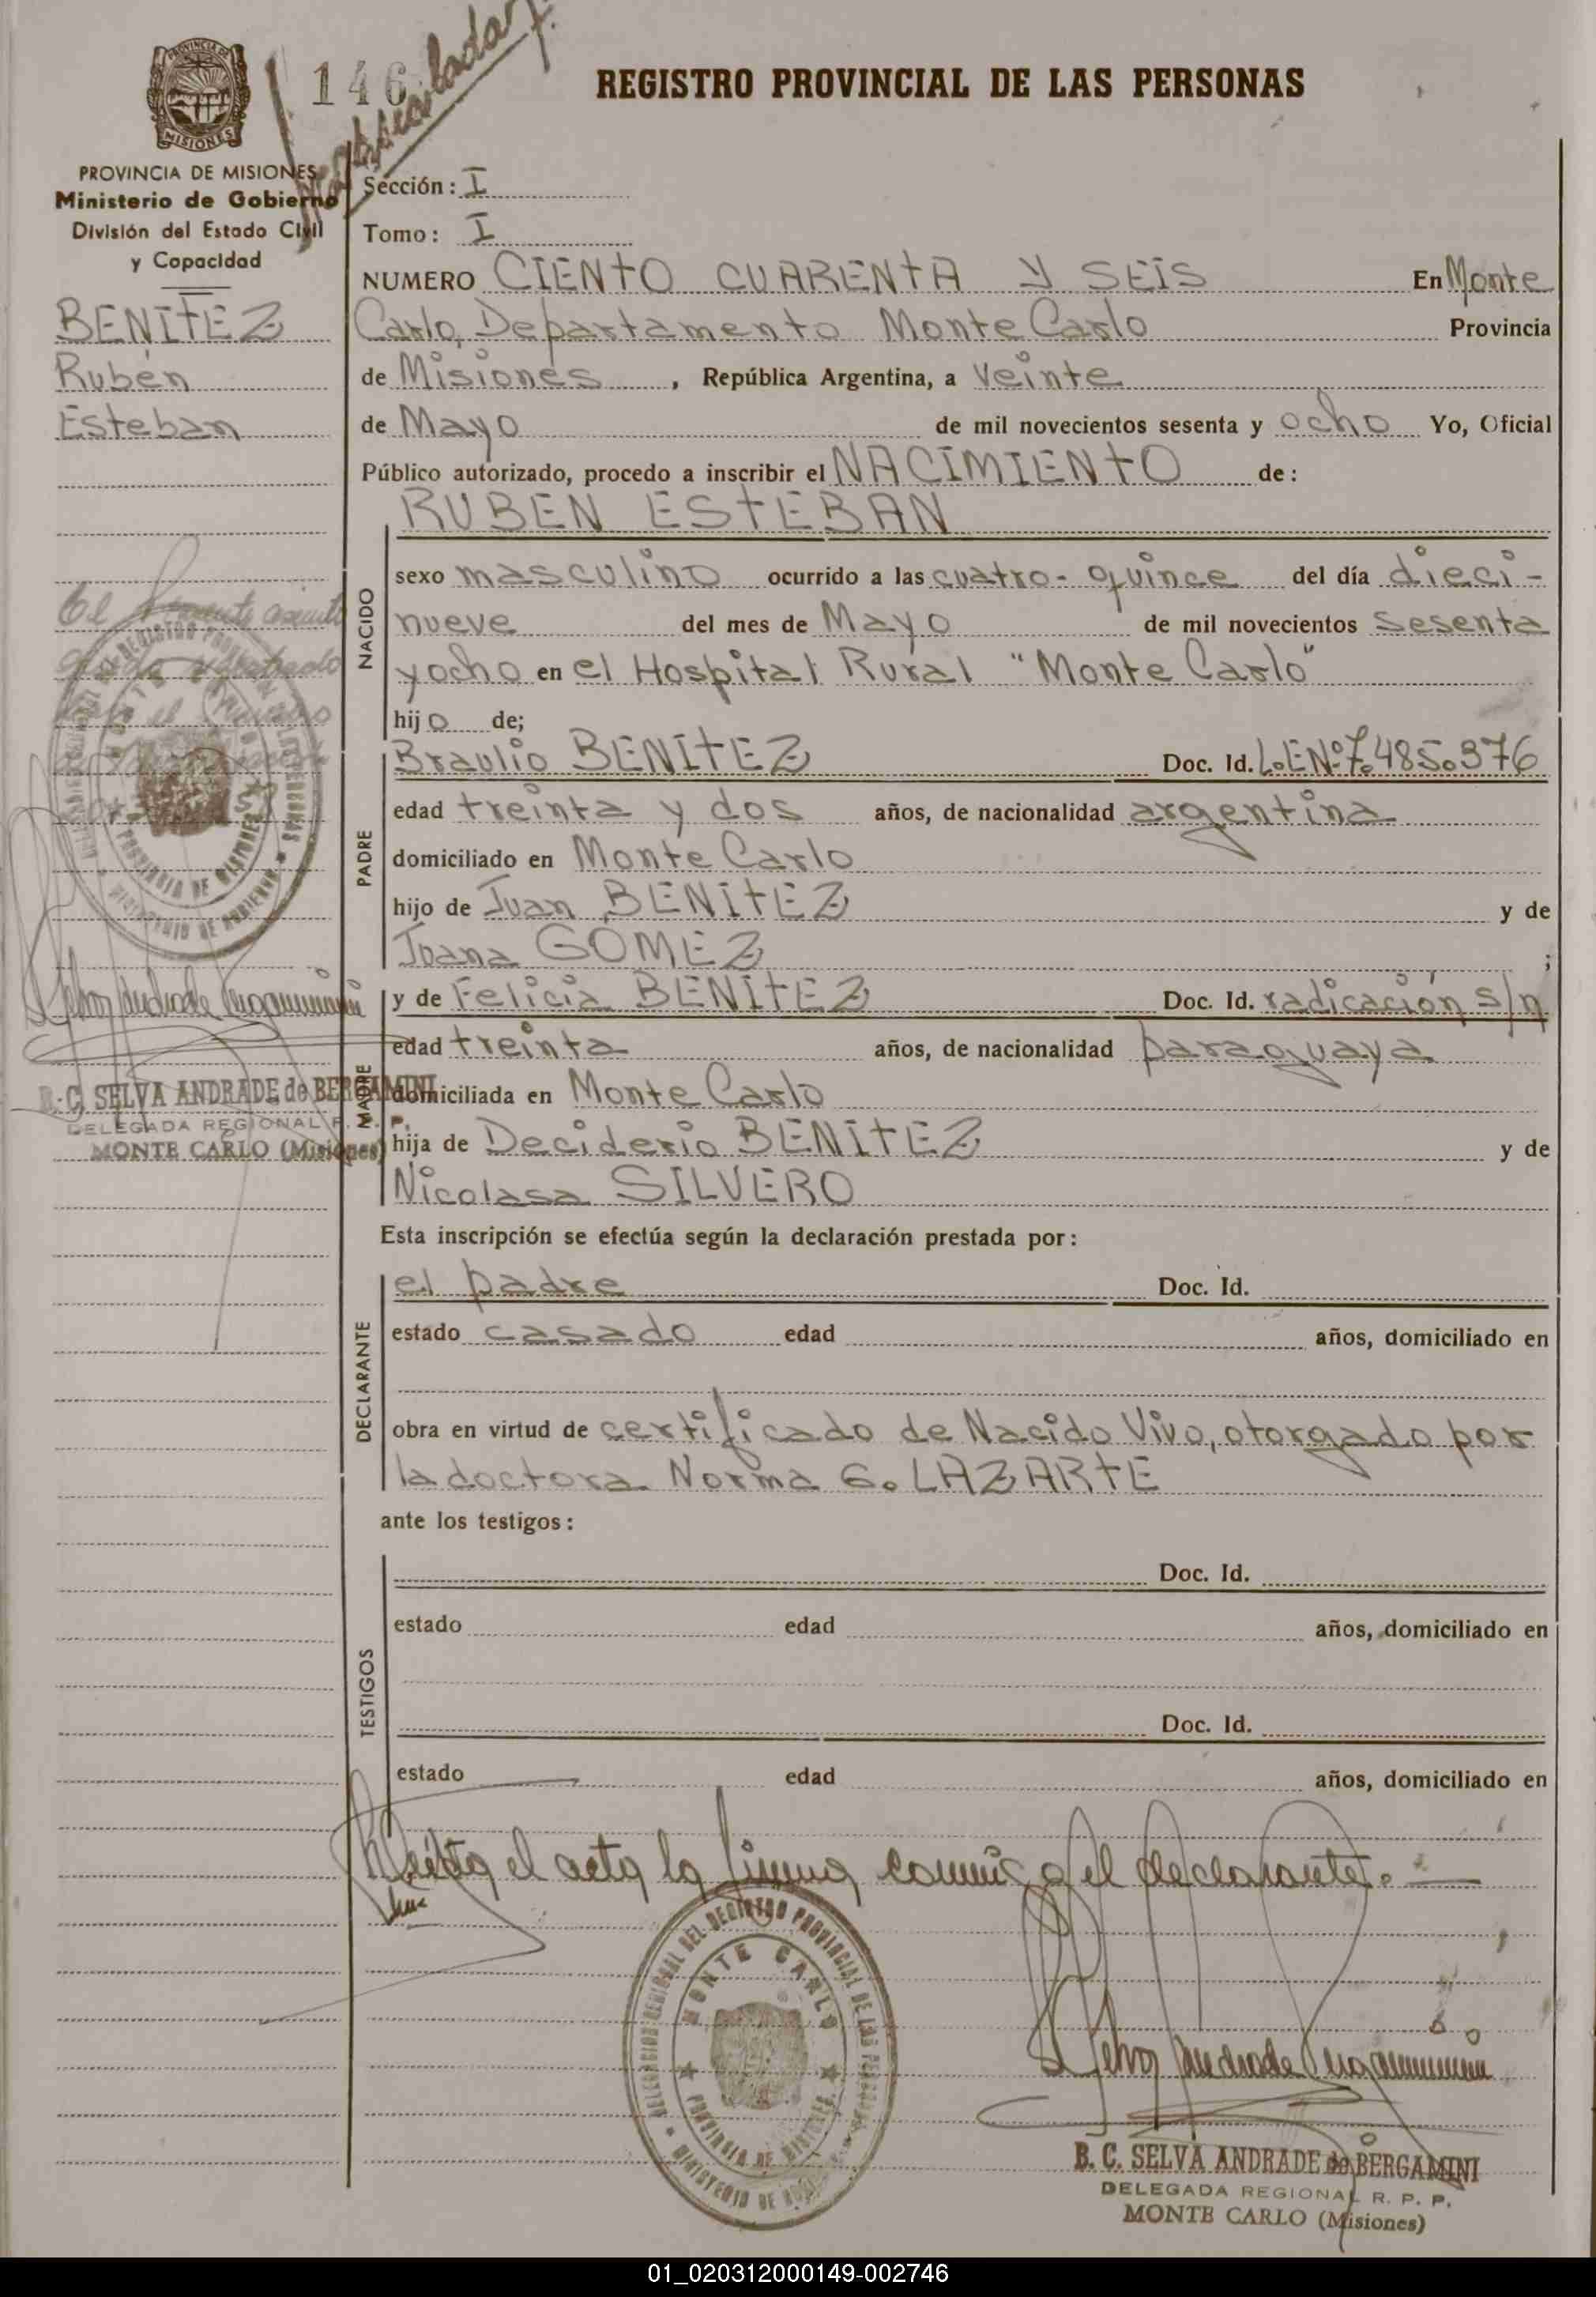 146
REGISTRO PROVINCIAL DE LAS PERSONAS
PROVINCIA DE MISIONES
Ministerio de Gobierno
División del Estado Civil
y Capacidad
BENÍTEZ
Rubén
Esteban
Sección: I
Tomo: I
NUMERO CIENTO CUARENTA Y SEIS En Monte
Carlo, Departamento Monte Carlo Provincia
de Misiones, República Argentina, a Veinte
de Mayo de mil novecientos sesenta y ocho Yo, Oficial
Público autorizado, procedo a inscribir el NACIMIENTO de:
RUBEN ESTEBAN
NACIDO
sexo masculino ocurrido a las cuatro-quince del día dieci-
nueve del mes de Mayo de mil novecientos sesenta
y ocho en el Hospital Rural "Monte Carlo"
hijo de;
PADRE
Braulio BENÍTEZ Doc. Id. L.E.Nº 7.485.376
edad treinta y dos años, de nacionalidad argentina
domiciliado en Monte Carlo
hijo de Juan BENÍTEZ y de
Juana GÓMEZ ;
MADRE
y de Felicia BENÍTEZ Doc. Id. radicación s/n
edad treinta años, de nacionalidad paraguaya
domiciliada en Monte Carlo
hija de Deciderio BENÍTEZ y de
Nicolasa SILVERO
Esta inscripción se efectúa según la declaración prestada por:
DECLARANTE
el padre Doc. Id.
estado casado edad años, domiciliado en
obra en virtud de certificado de Nacido Vivo, otorgado por
la doctora Norma G. LAZARTE
ante los testigos:
TESTIGOS
Doc. Id.
estado edad años, domiciliado en
Doc. Id.
estado edad años, domiciliado en
el acta la firma conmigo el declarante.
B. C. SELVA ANDRADE de BERGAMINI
DELEGADA REGIONAL R. P. P.
MONTE CARLO (Misiones)
MONTE CARLO
PROVINCIA DE MISIONES
B. C. SELVA ANDRADE de BERGAMINI
DELEGADA REGIONAL R. P. P.
MONTE CARLO (Misiones)
01_020312000149-002746